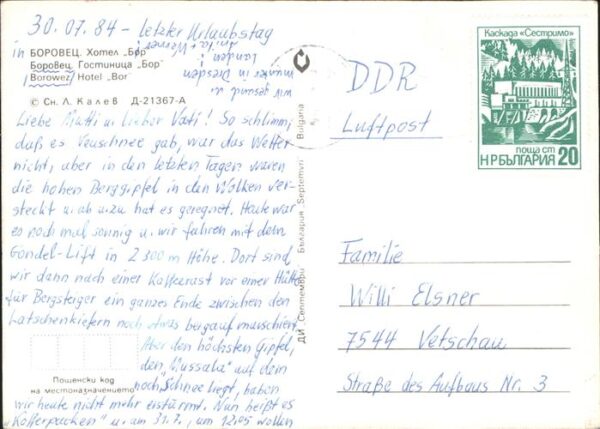 30.07.84 – letzter Urlaubstag
in БОРОВЕЦ. Хотел „Бор"
Боровец. Гостиница „Бор"
Borowez, Hotel „Bor"
© Сн. Л. Калев Д-21367-А
Liebe Mutti u. lieber Vati! So schlimm,
daß es Neuschnee gab, war das Wetter
nicht, aber in den letzten Tagen waren
die hohen Berggipfel in den Wolken ver-
steckt u. ab u. zu hat es geregnet. Heute war
es noch mal sonnig u. wir fuhren mit dem
Gondel-Lift in 2300 m Höhe. Dort sind
wir dann nach einer Kaffeerast vor einer Hütte
für Bergsteiger ein ganzes Ende zwischen den
Latschenkiefern noch etwas bergauf marschiert.
Aber den höchsten Gipfel,
den „Mussala" auf dem
noch Schnee liegt, haben
wir heute nicht mehr erstürmt. Nun heißt es
„Kofferpacken" u. am 31.7., um 12.05 wollen
wir gesund u.
munter in Dresden
landen!
Anita + Werner
Пощенски код
на местоназначението
ДИ „Септември" България „Septemvri" Bulgaria
Каскада „Сестримо"
поща ст
НР БЪЛГАРИЯ 20
DDR
Luftpost
Familie
Willi Elsner
7544 Vetschau
Straße des Aufbaus Nr. 3